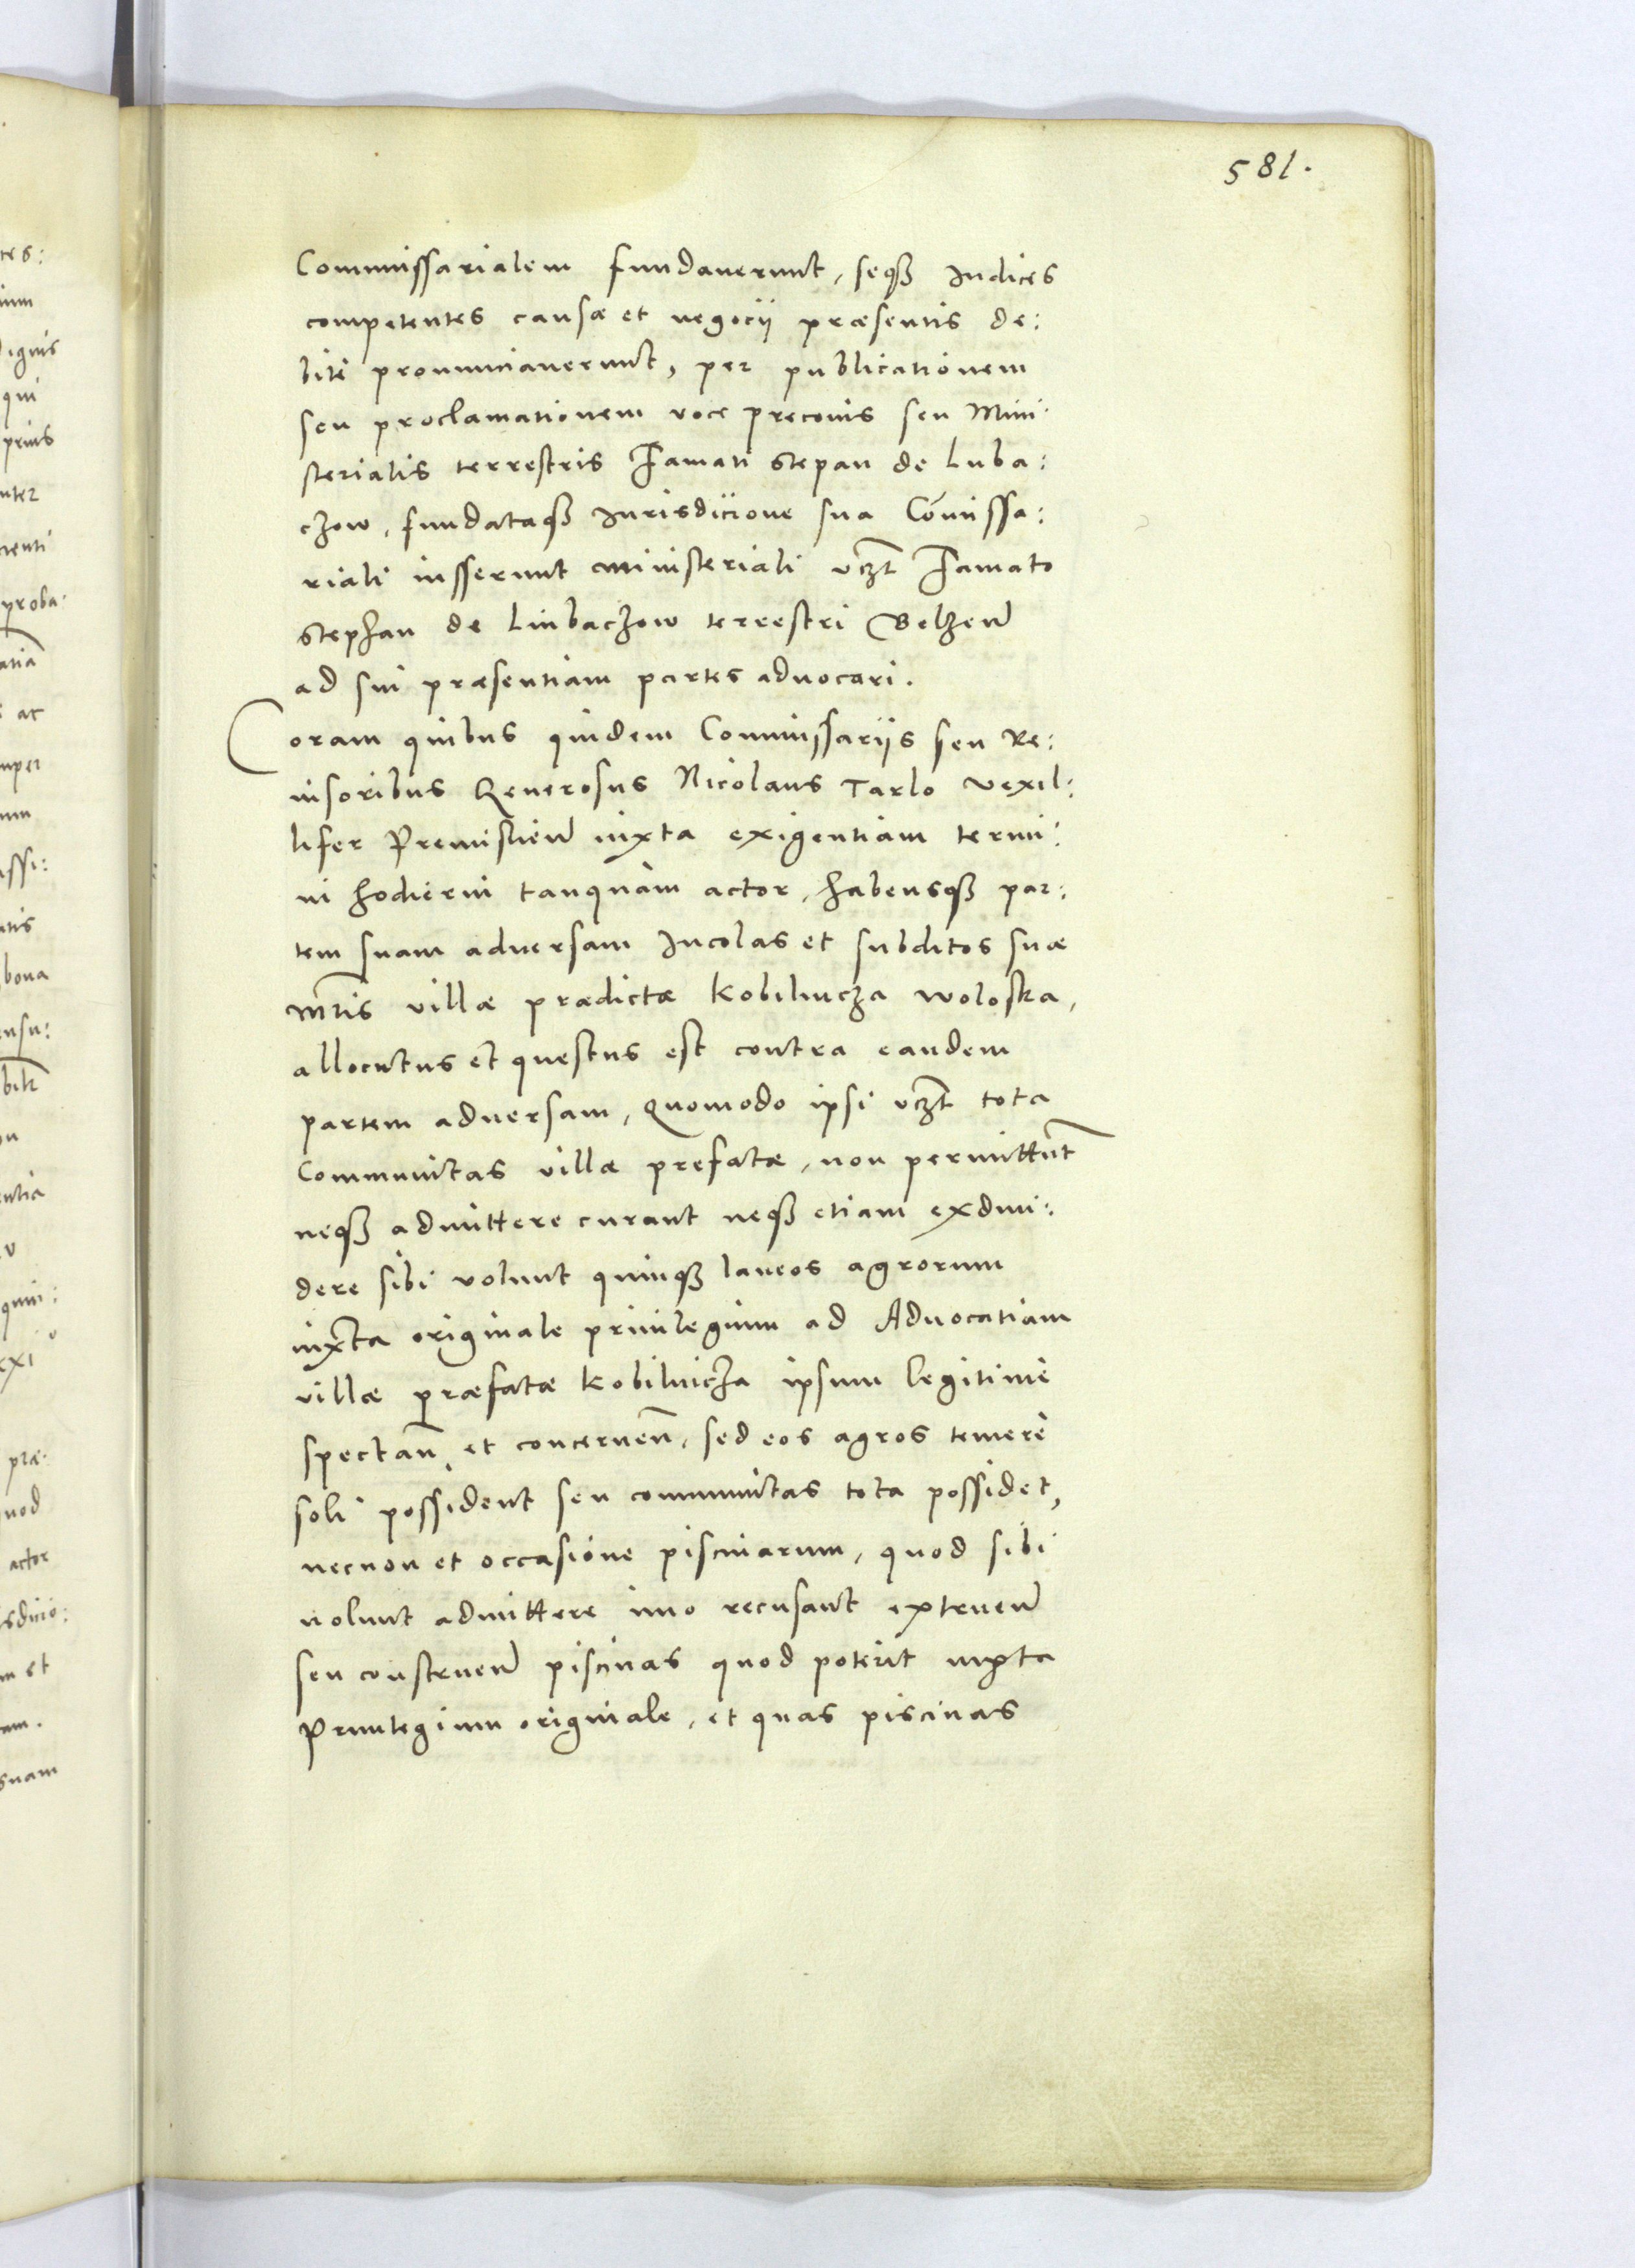 581.
Commissarialem fundauerunt, seqꝫ Iudices
competentes causæ et negocij præsentis de:
bitè pronunciauerunt, per publicationem
seu proclamationem voce preconis seu Mini:
sterialis terrestris Famati Stepan de Luba:
czow, fundataqꝫ Iurisdicione sua Cōmissa:
riali iusserunt Ministeriali vcꝫt Famato
Stephan de Liubaczow terrestri Belzen̄
ad sui præsentiam partes aduocari.
Coram quibus quidem Commissarijs seu Re:
uisoribus Generosus Nicolaus Tarlo vexil:
lifer Premislien̄ iuxta exigentiam termi:
ni hodierni tanquam actor, habensqꝫ par:
tem suam aduersam Incolas et subditos suæ
Mt̄is villæ prædictæ Kobilnicza woloska,
allocutus et questus est contra eandem
partem aduersam, Quomodo ipsi vcꝫt tota
Communitas villæ prefatæ, non permittunt
neqꝫ admittere curant neqꝫ etiam exdiui:
dere sibi volunt quinqꝫ laneos agrorum
iuxta originale priuilegium ad Aduocatiam
villæ præfatæ Kobilnicza ipsum legitimè
spectan̄ et concernen̄, sed eos agros temerè
soli possident seu communitas tota possidet,
necnon et occasione piscinarum, quod sibi
nolunt admittere imo recusant extruen̄
seu construen̄ piscinas quod poterit iuxta
Priuilegium originale, et quas piscinas